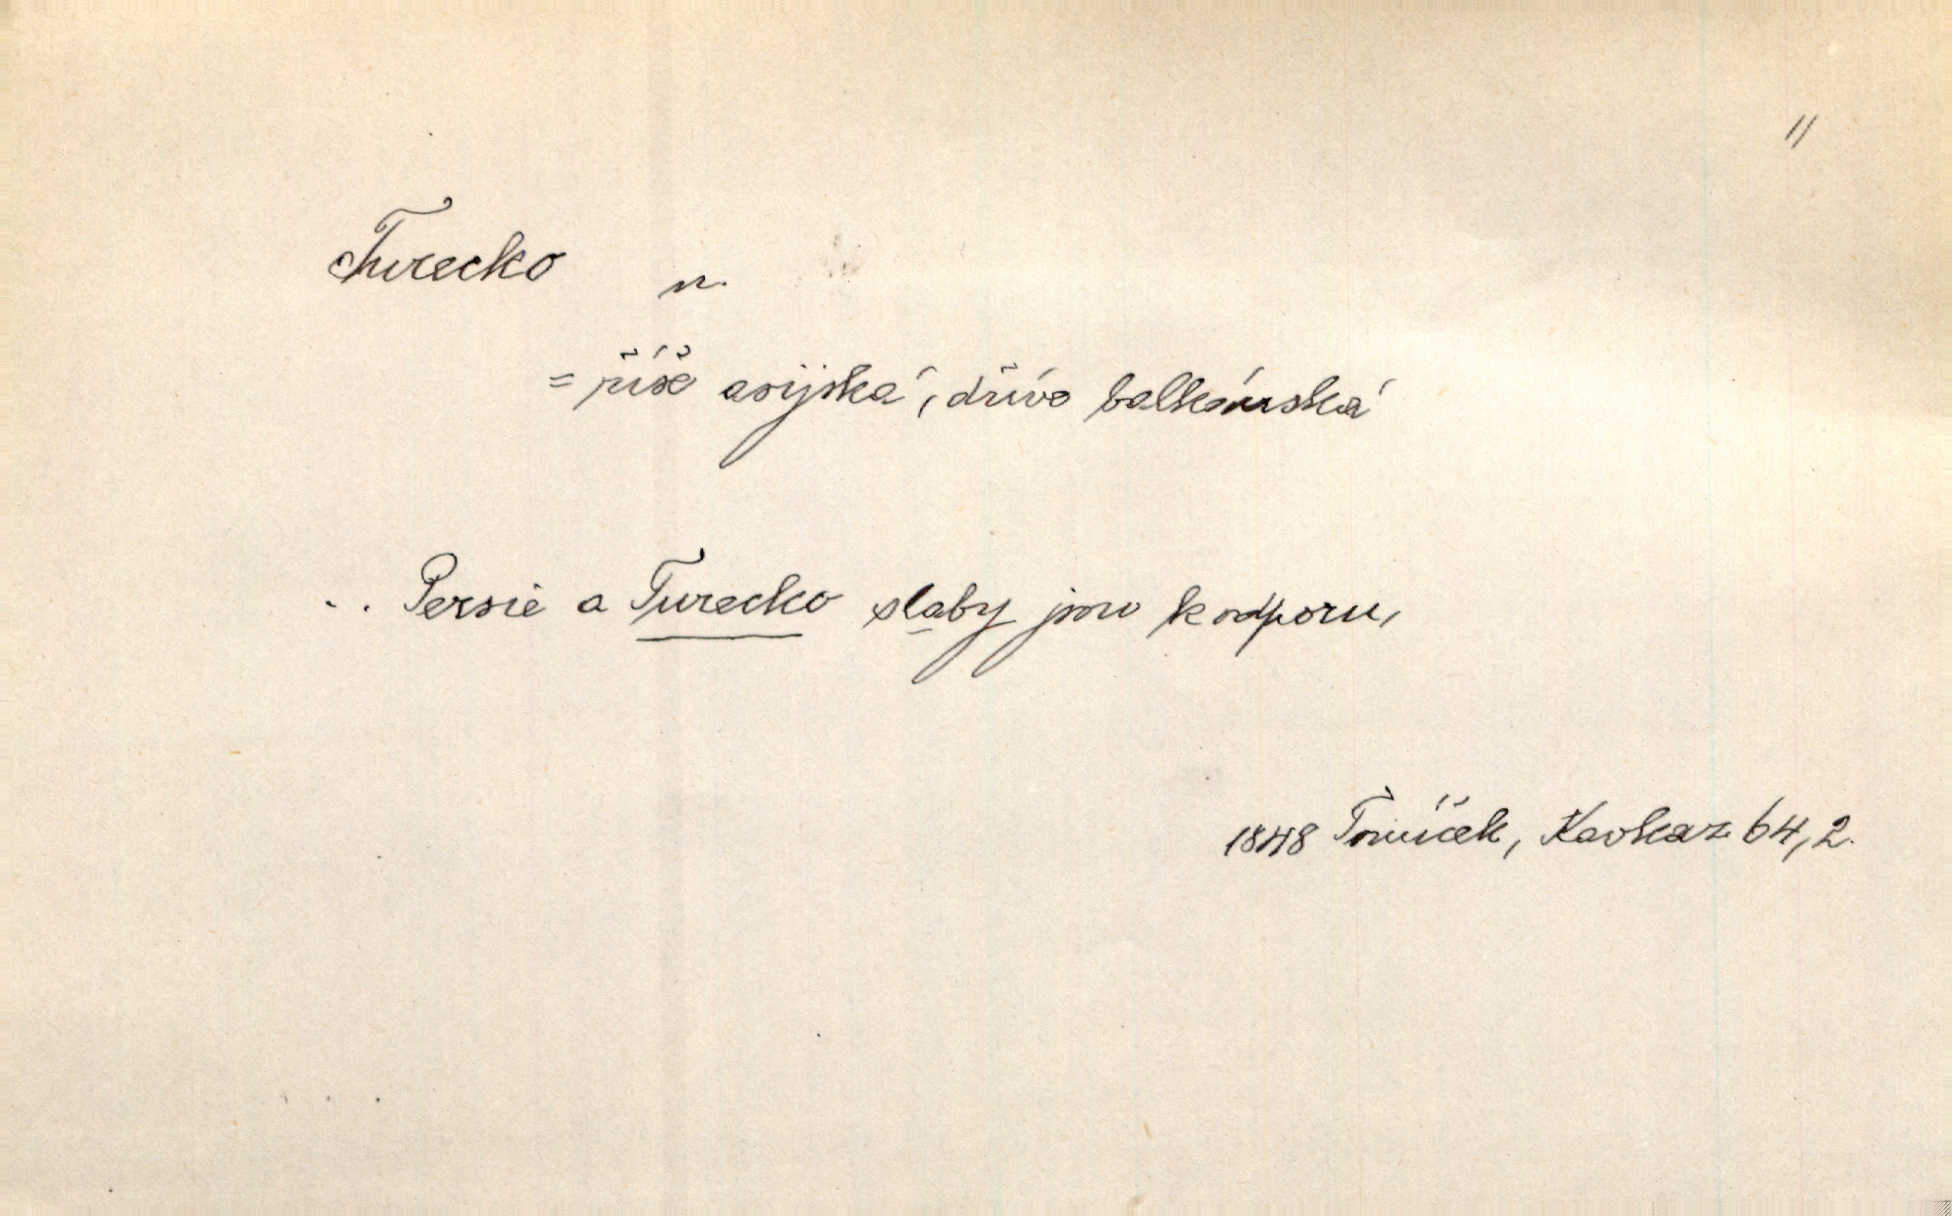 "
Turecko n.
= říše asijská, dříve balkánská
.. Persie a Turecko slaby jsou k odporu,
1848 Tomíček, Kavkaz 64, 2.